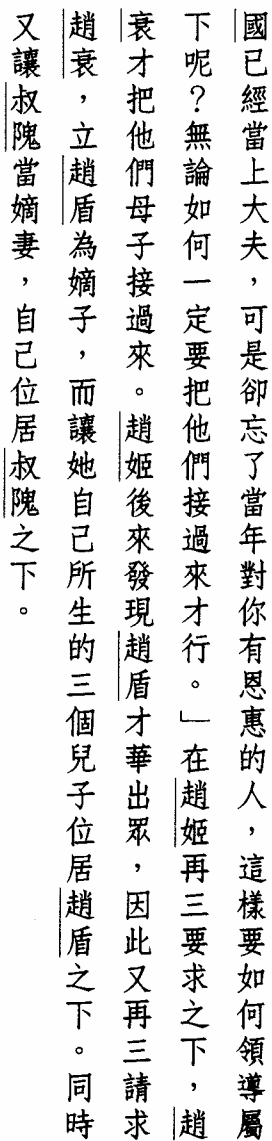 國已經當上大夫，可是卻忘了當年對你有恩惠的人，這樣要如何領導屬
下呢？無論如何一定要把他們接過來才行。」在趙姬再三要求之下，趙
衰才把他們母子接過來。趙姬後來發現趙盾才華出眾，因此又再三請求
趙衰，立趙盾為嫡子，而讓她自己所生的三個兒子位居趙盾之下。同時
又讓叔隗當嫡妻，自己位居叔隗之下。